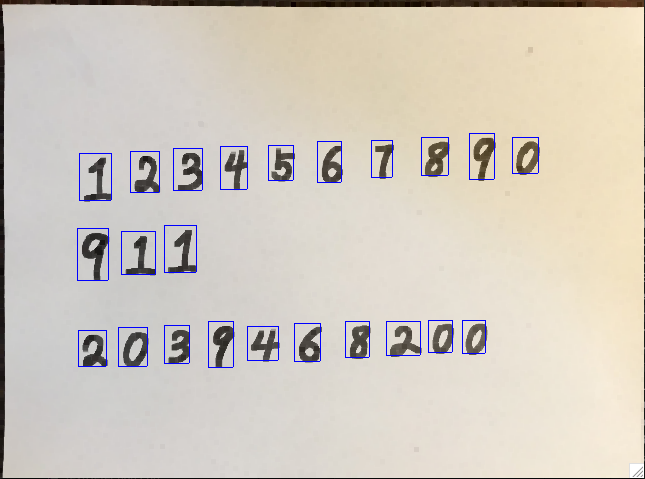 1 2 3 4 5 6 7 8 9 0
9 1 1
2 0 3 9 4 6 8 2 0 0